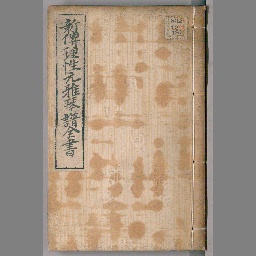 新傳理性元雅琴譜全書